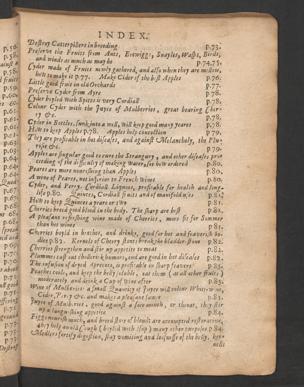 INDEX.
Destroy Catterpillers in breeding p.73.
Preserve the Fruits from Ants, Earwiggs, Snayles, Wasps, Birds,
and winds as much as may be p.74,75.
Cyder made of Fruits newly gathered, and also when they are mellow,
how to make it p.77. Make Cider of the best Apples p.76.
Little good fruit in old Orchards p.77.
Preserve Cyder from Ayre p.78.
Cider boyled with Spices is very Cordiall p.78,
Colour Cyder with the Juyce of Mulberries, great bearing
Cyder in Bottles, sunk into a well, will keep good many years p.78.
How to keep Apples p.78. Apples help concoction p.79.
They are profitable in hot diseases, and against Melancholy, the
p.79.
Apples are singular good to cure the Strangury, and other diseases
ceeding of the difficulty of making Water, for both ordered p.80.
Pears are more nourishing than Apples p.80.
A wine of Peares, not inferior to French Wine p.80.
Cyder, and Perry, Cordiall Liquors, profitable for health and long-
life p.80. Quinces, Cordiall fruits and of manifold uses p.81
How to keep Quinces a yeare or two p.81.
Cherries breed good blood in the body. The sharp are best p.81.
A pleasant refreshing wine made of Cherries, more fit for Summer
than hot wines p.81.
Cherries boyld in brothes, and drinks, good for hot and feaverish
p.82. Kernels of Cherry stones break the bladder stone p.82.
Cherries strengthen and stir up appetite to meat p.82.
Plummes cast out cholerick humors, and are good in hot diseases p.82.
The infusion of dryed Apricots, is profitable in sharp feavers p.83.
Peaches coole, and keep the belly soluble, eat them (as all other fruits)
moderately and drink a Cup of wine after p.83.
Wine of Mulberries: a small Quantity of Juyce will colour White-wine,
Cider, Perry &c. and makes a pleasant p.83.
Juyce of Mulberies, good against a sore mouth, or throat, they stir
up a languishing appetite p.84.
Figgs nourish much, and breed store of blood: are accounted restorative,
they help an old Cough (boyled with isop) many other purposes p.84.
Medlers fortify digestion, stay vomiting and loosnesse of the belly,